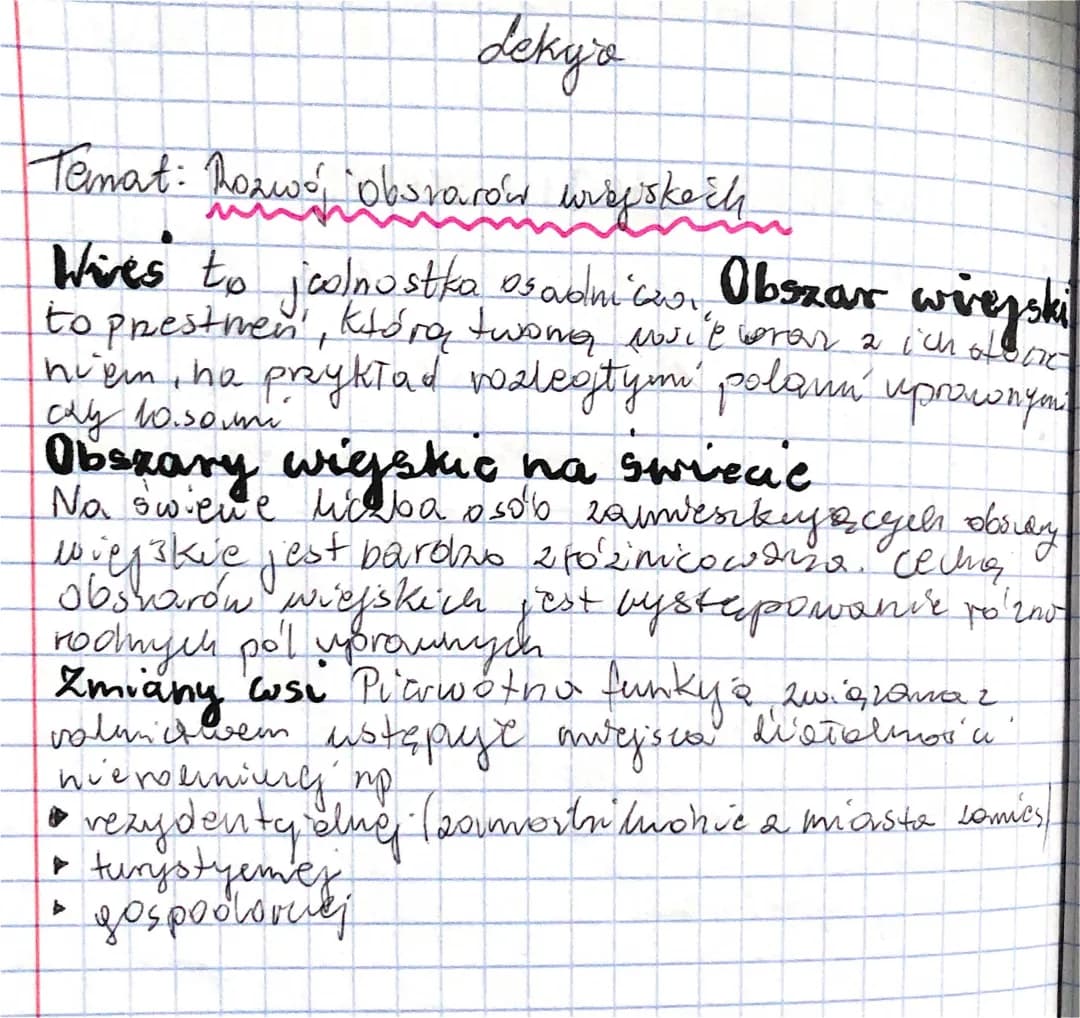 Lekcja
Temat: Rozwój obszarów wiejskich
Wieś to jednostka osadnicza. Obszar wiejski
to przestrzeń, którą tworzą wsie wraz z ich otocze-
niem, na przykład rozległymi polami uprawnymi
czy lasami
Obszary wiejskie na świecie
Na świecie liczba osób zamieszkujących obszary
wiejskie jest bardzo zróżnicowana. Cechą
obszarów wiejskich jest występowanie różno
rodnych pól uprawnych
Zmiany wsi Pierwotna funkcja związana z
rolnictwem ustępuje miejsca działalności
nierolniczej np
▸ rezydencjalnej (zamożni ludzie z miasta
▸ turystycznej
▸ gospodarczej